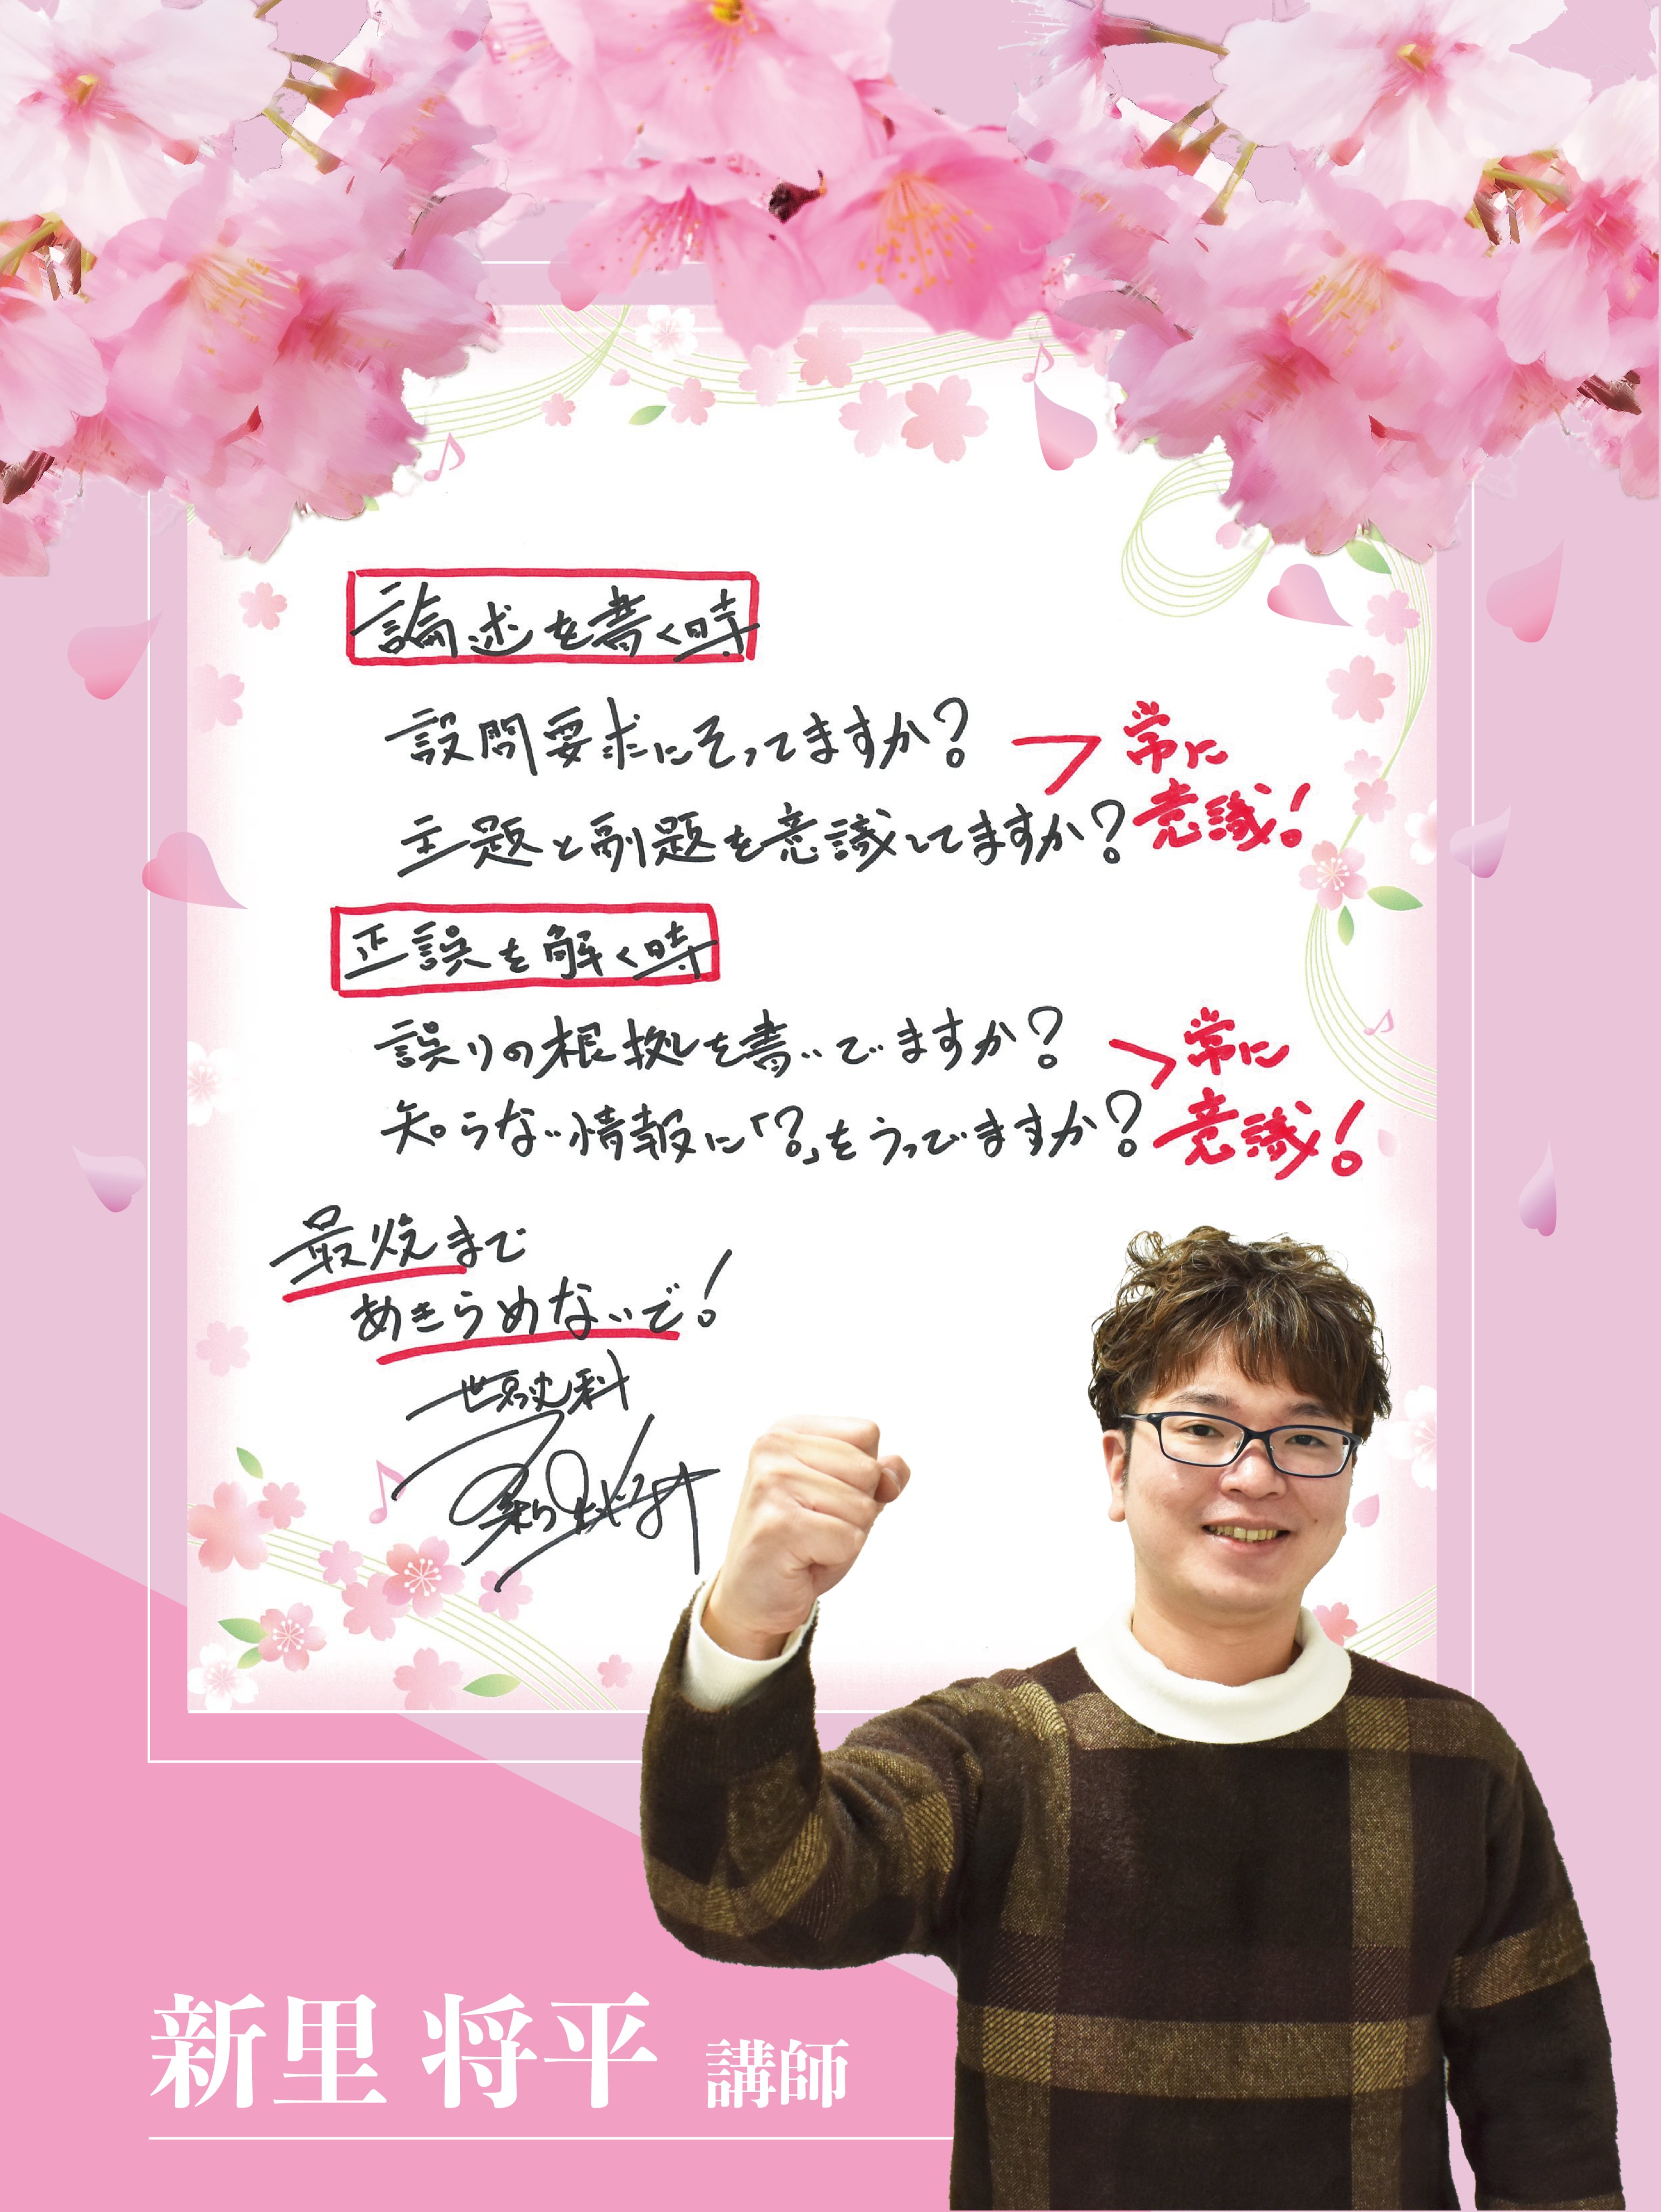 論述を書く時
設問要求にそってますか?
主題と副題を意識してますか?
常に
意識!
正誤を解く時
誤りの根拠を書いてますか?
知らない情報に「?」をうってますか?
常に
意識!
最後まで
あきらめないで!
世界史科
新里将平
新里 将平 講師